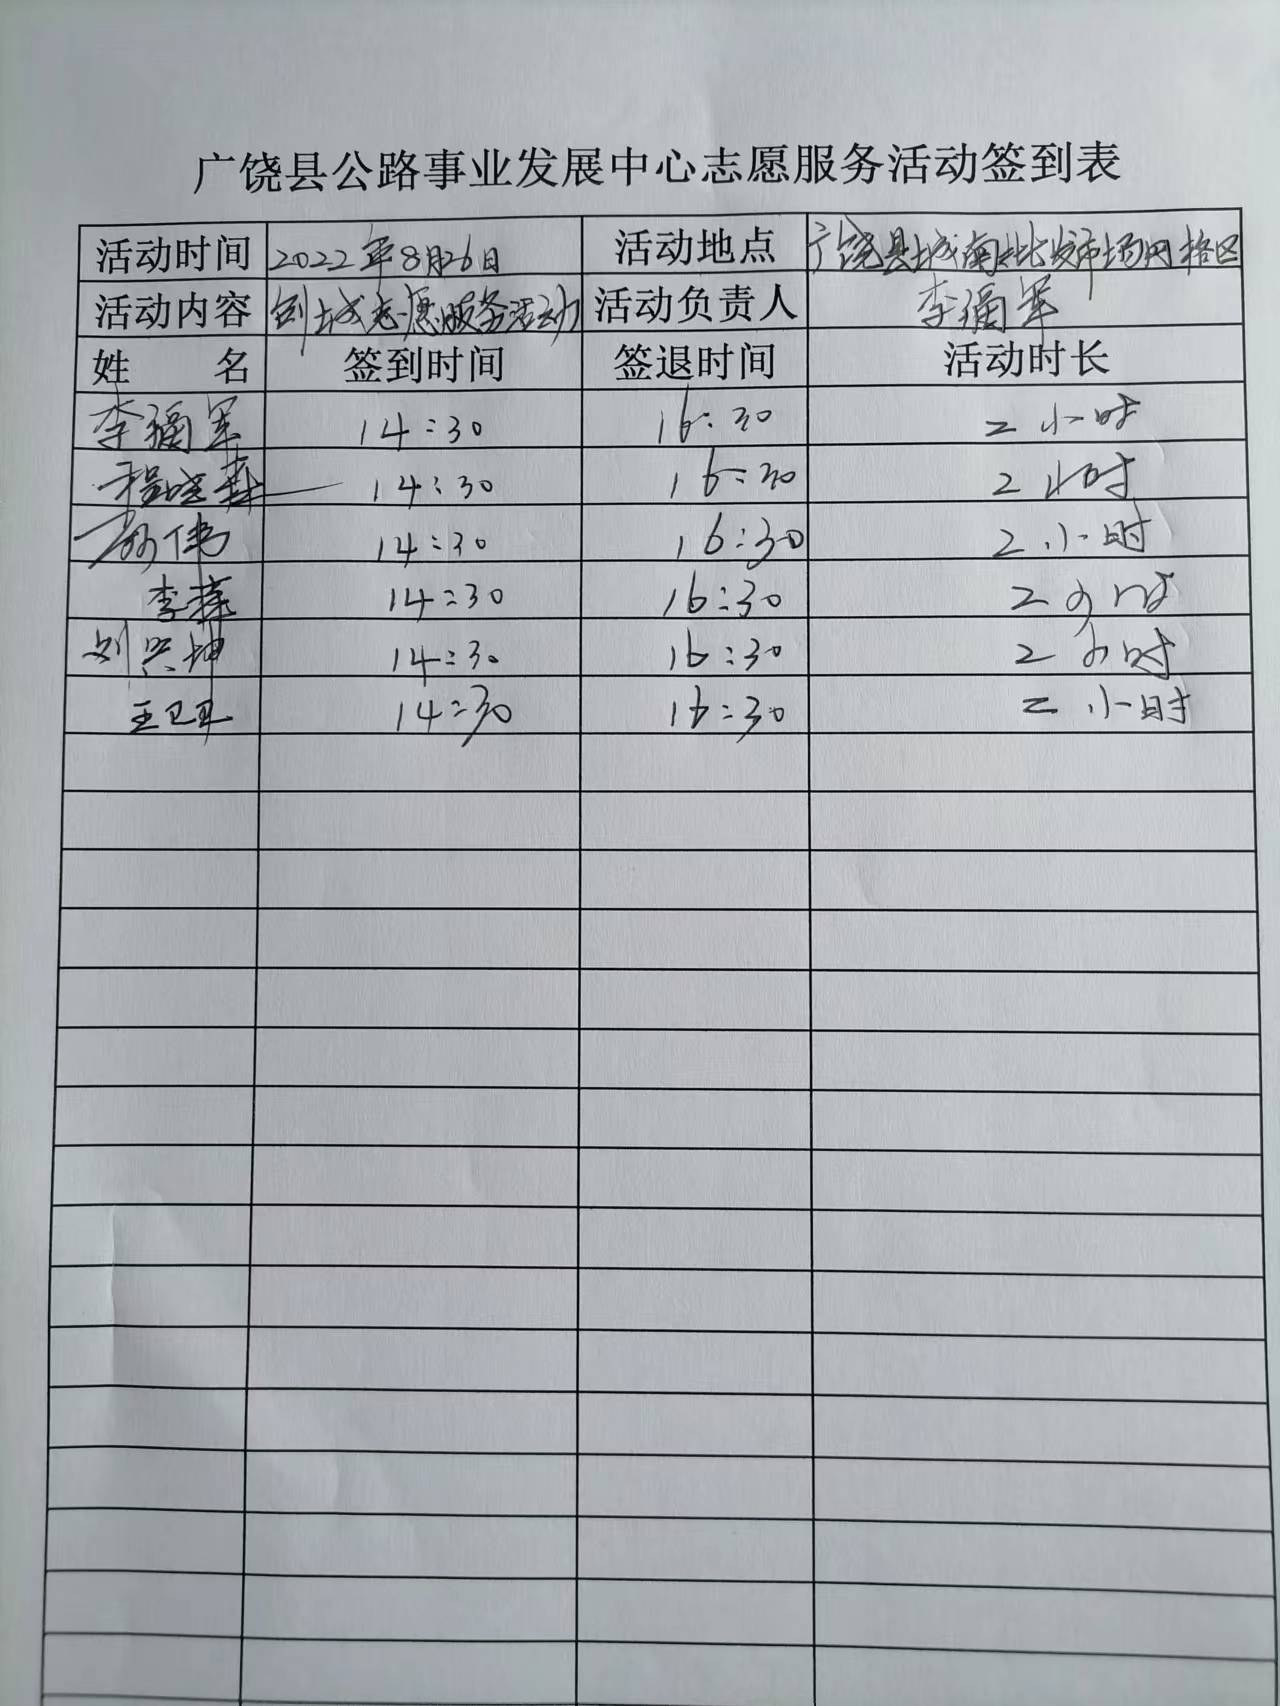 广饶县公路事业发展中心志愿服务活动签到表
活动时间 2022年8月26日 活动地点 广饶县城南批发市场网格区
活动内容 创城志愿服务活动 活动负责人 李 军
姓 名 签到时间 签退时间 活动时长
李 军 14:30 16:30 2小时
程晓森 14:30 16:30 2小时
伟 14:30 16:30 2小时
李 14:30 16:30 2小时
刘兴坤 14:30 16:30 2小时
王卫 14:30 16:30 2小时